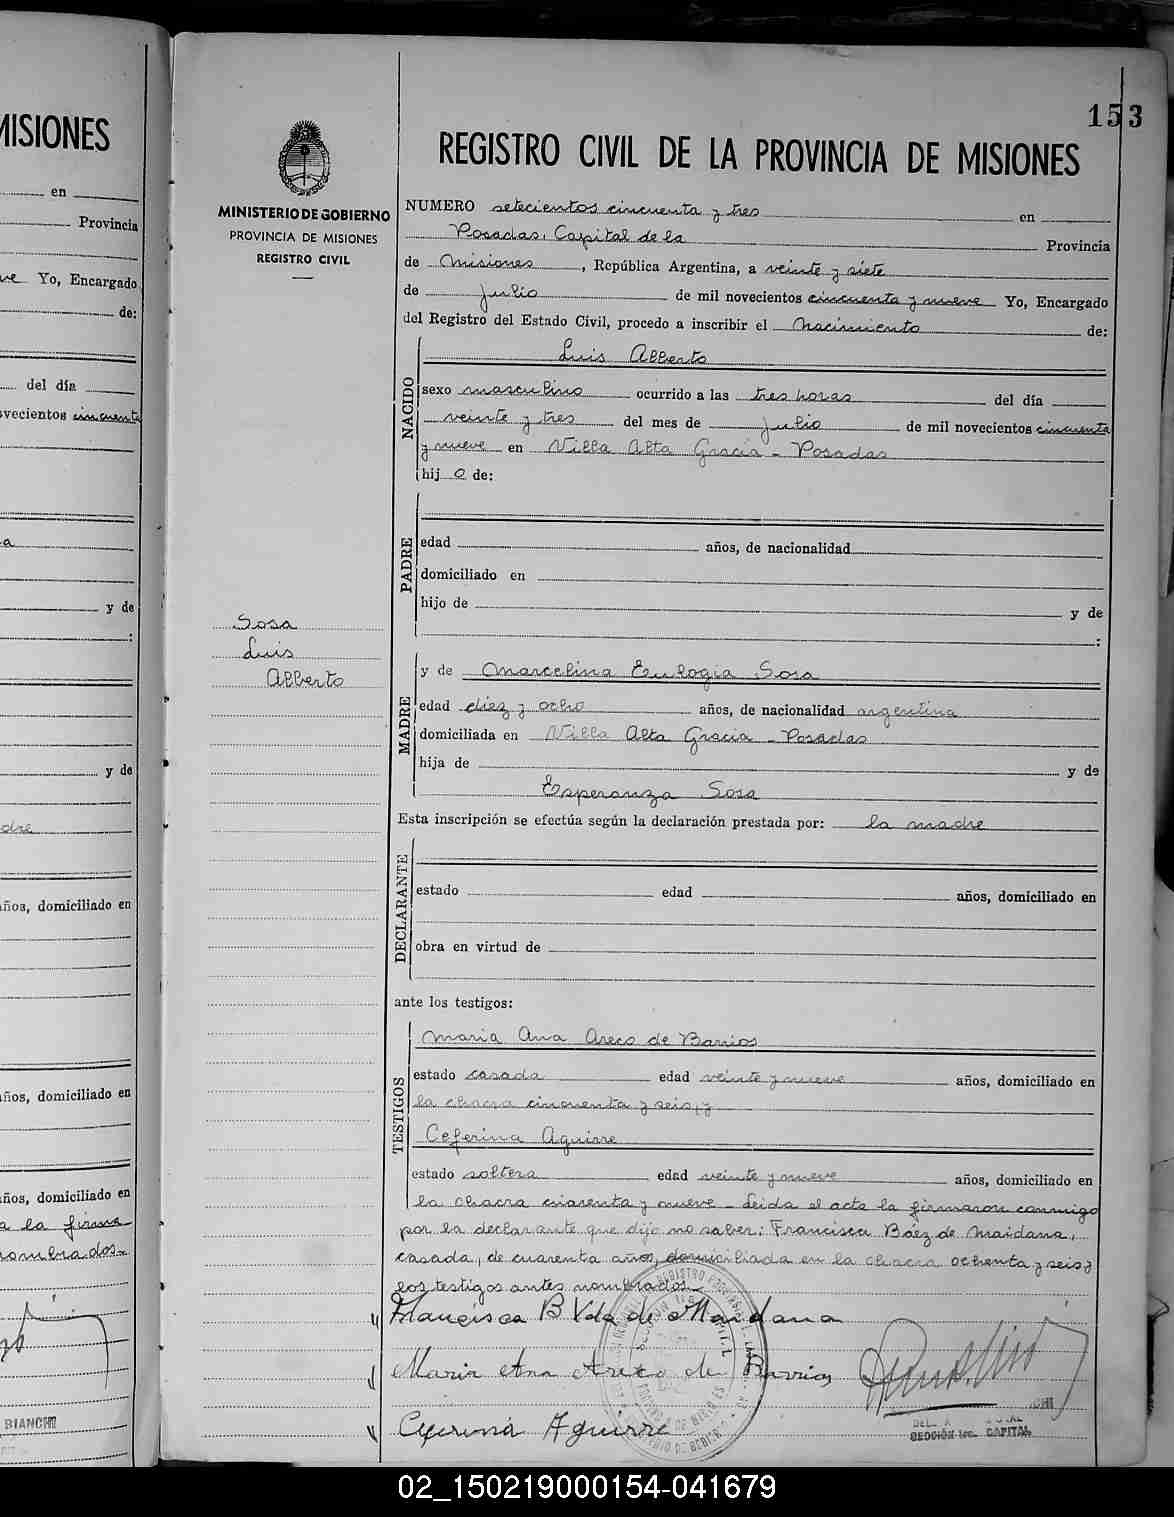 MISIONES
en
Provincia
Yo, Encargado
de:
del día
novecientos cincuenta
a
y de
:
y de
años, domiciliado en
años, domiciliado en
años, domiciliado en
a la firma
nombrados.
BIANCHI
153
MINISTERIO DE GOBIERNO
PROVINCIA DE MISIONES
REGISTRO CIVIL
Sosa
Luis
Alberto
REGISTRO CIVIL DE LA PROVINCIA DE MISIONES
NUMERO setecientos cincuenta y tres en
Posadas, Capital de la Provincia
de Misiones, República Argentina, a veinte y siete
de julio de mil novecientos cincuenta y nueve Yo, Encargado
del Registro del Estado Civil, procedo a inscribir el Nacimiento de:
NACIDO
Luis Alberto
sexo masculino ocurrido a las tres horas del día
veinte y tres del mes de julio de mil novecientos cincuenta
y nueve en Villa Alta Gracia - Posadas
hij o de:
PADRE
edad años, de nacionalidad
domiciliado en
hijo de y de
:
MADRE
y de Marcelina Eulogia Sosa
edad diez y ocho años, de nacionalidad argentina
domiciliada en Villa Alta Gracia - Posadas
hija de y de
Esperanza Sosa
Esta inscripción se efectúa según la declaración prestada por: la madre
DECLARANTE
estado edad años, domiciliado en
obra en virtud de
ante los testigos:
TESTIGOS
Maria Ana Areco de Barrios
estado casada edad veinte y nueve años, domiciliado en
la chacra cincuenta y seis, y
Ceferina Aguirre
estado soltera edad veinte y nueve años, domiciliado en
la chacra cuarenta y nueve - Leida el acta la firmaron conmigo
por la declarante que dijo no saber: Francisca Báez de Maidana,
casada, de cuarenta años, domiciliada en la chacra ochenta y seis y
los testigos antes nombrados.-
Francisca B Vda de Maidana
Maria Ana Areco de Barrios
Ceferina Aguirre
SECCIÓN 1ra. CAPITAL
02_150219000154-041679